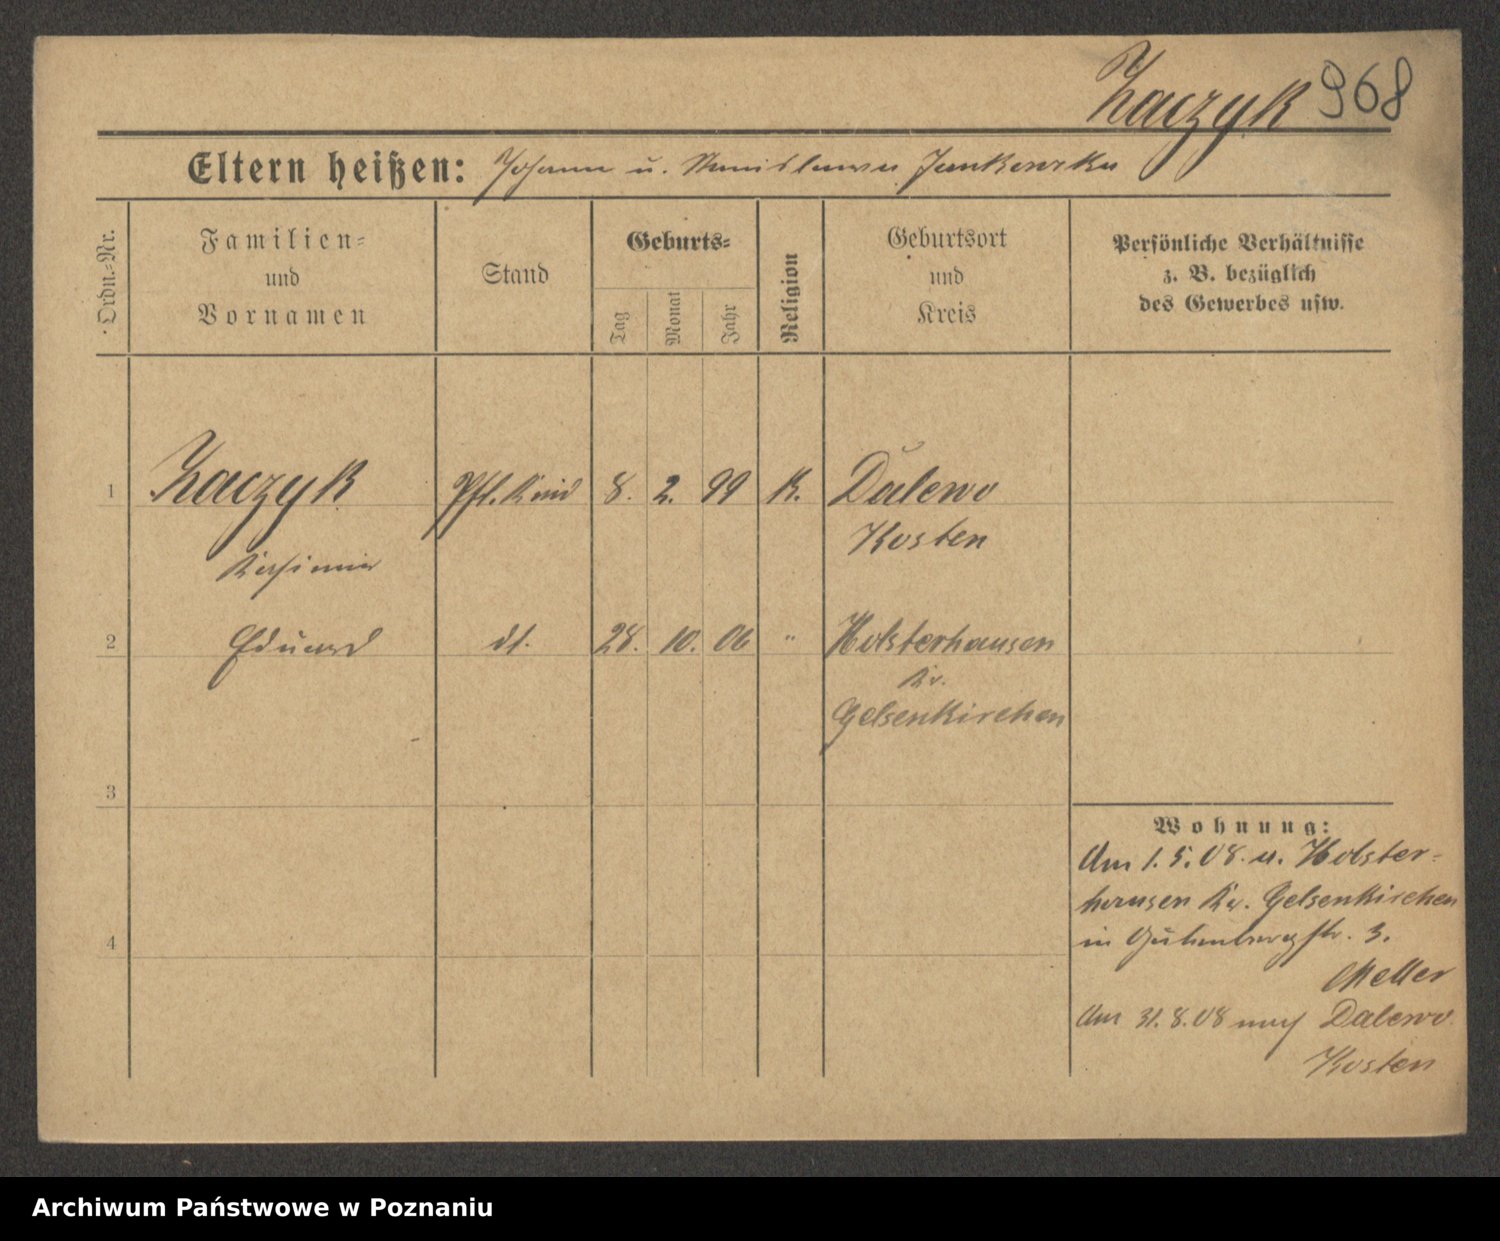 Kaczyk 968
Eltern heißen: Johann u. Stanislawa Jankowska
Ordn.-Nr.
Familien-
und
Vornamen
Stand
Geburts-
Tag
Monat
Jahr
Religion
Geburtsort
und
Kreis
Persönliche Verhältnisse
z. B. bezüglich
des Gewerbes usw.
1 Kaczyk Pfl. Kind 8. 2. 99 K. Dalewo
Kosten
Kasimir
2 Eduard dt. 28. 10. 06 " Holsterhausen
Kr.
Gelsenkirchen
3
Wohnung:
Am 1. 5. 08. v. Holster-
hausen Kr. Gelsenkirchen
in Gutenbergstr. 3.
4
Meller
Am 31. 8. 08 nach Dalewo
Kosten
Archiwum Państwowe w Poznaniu